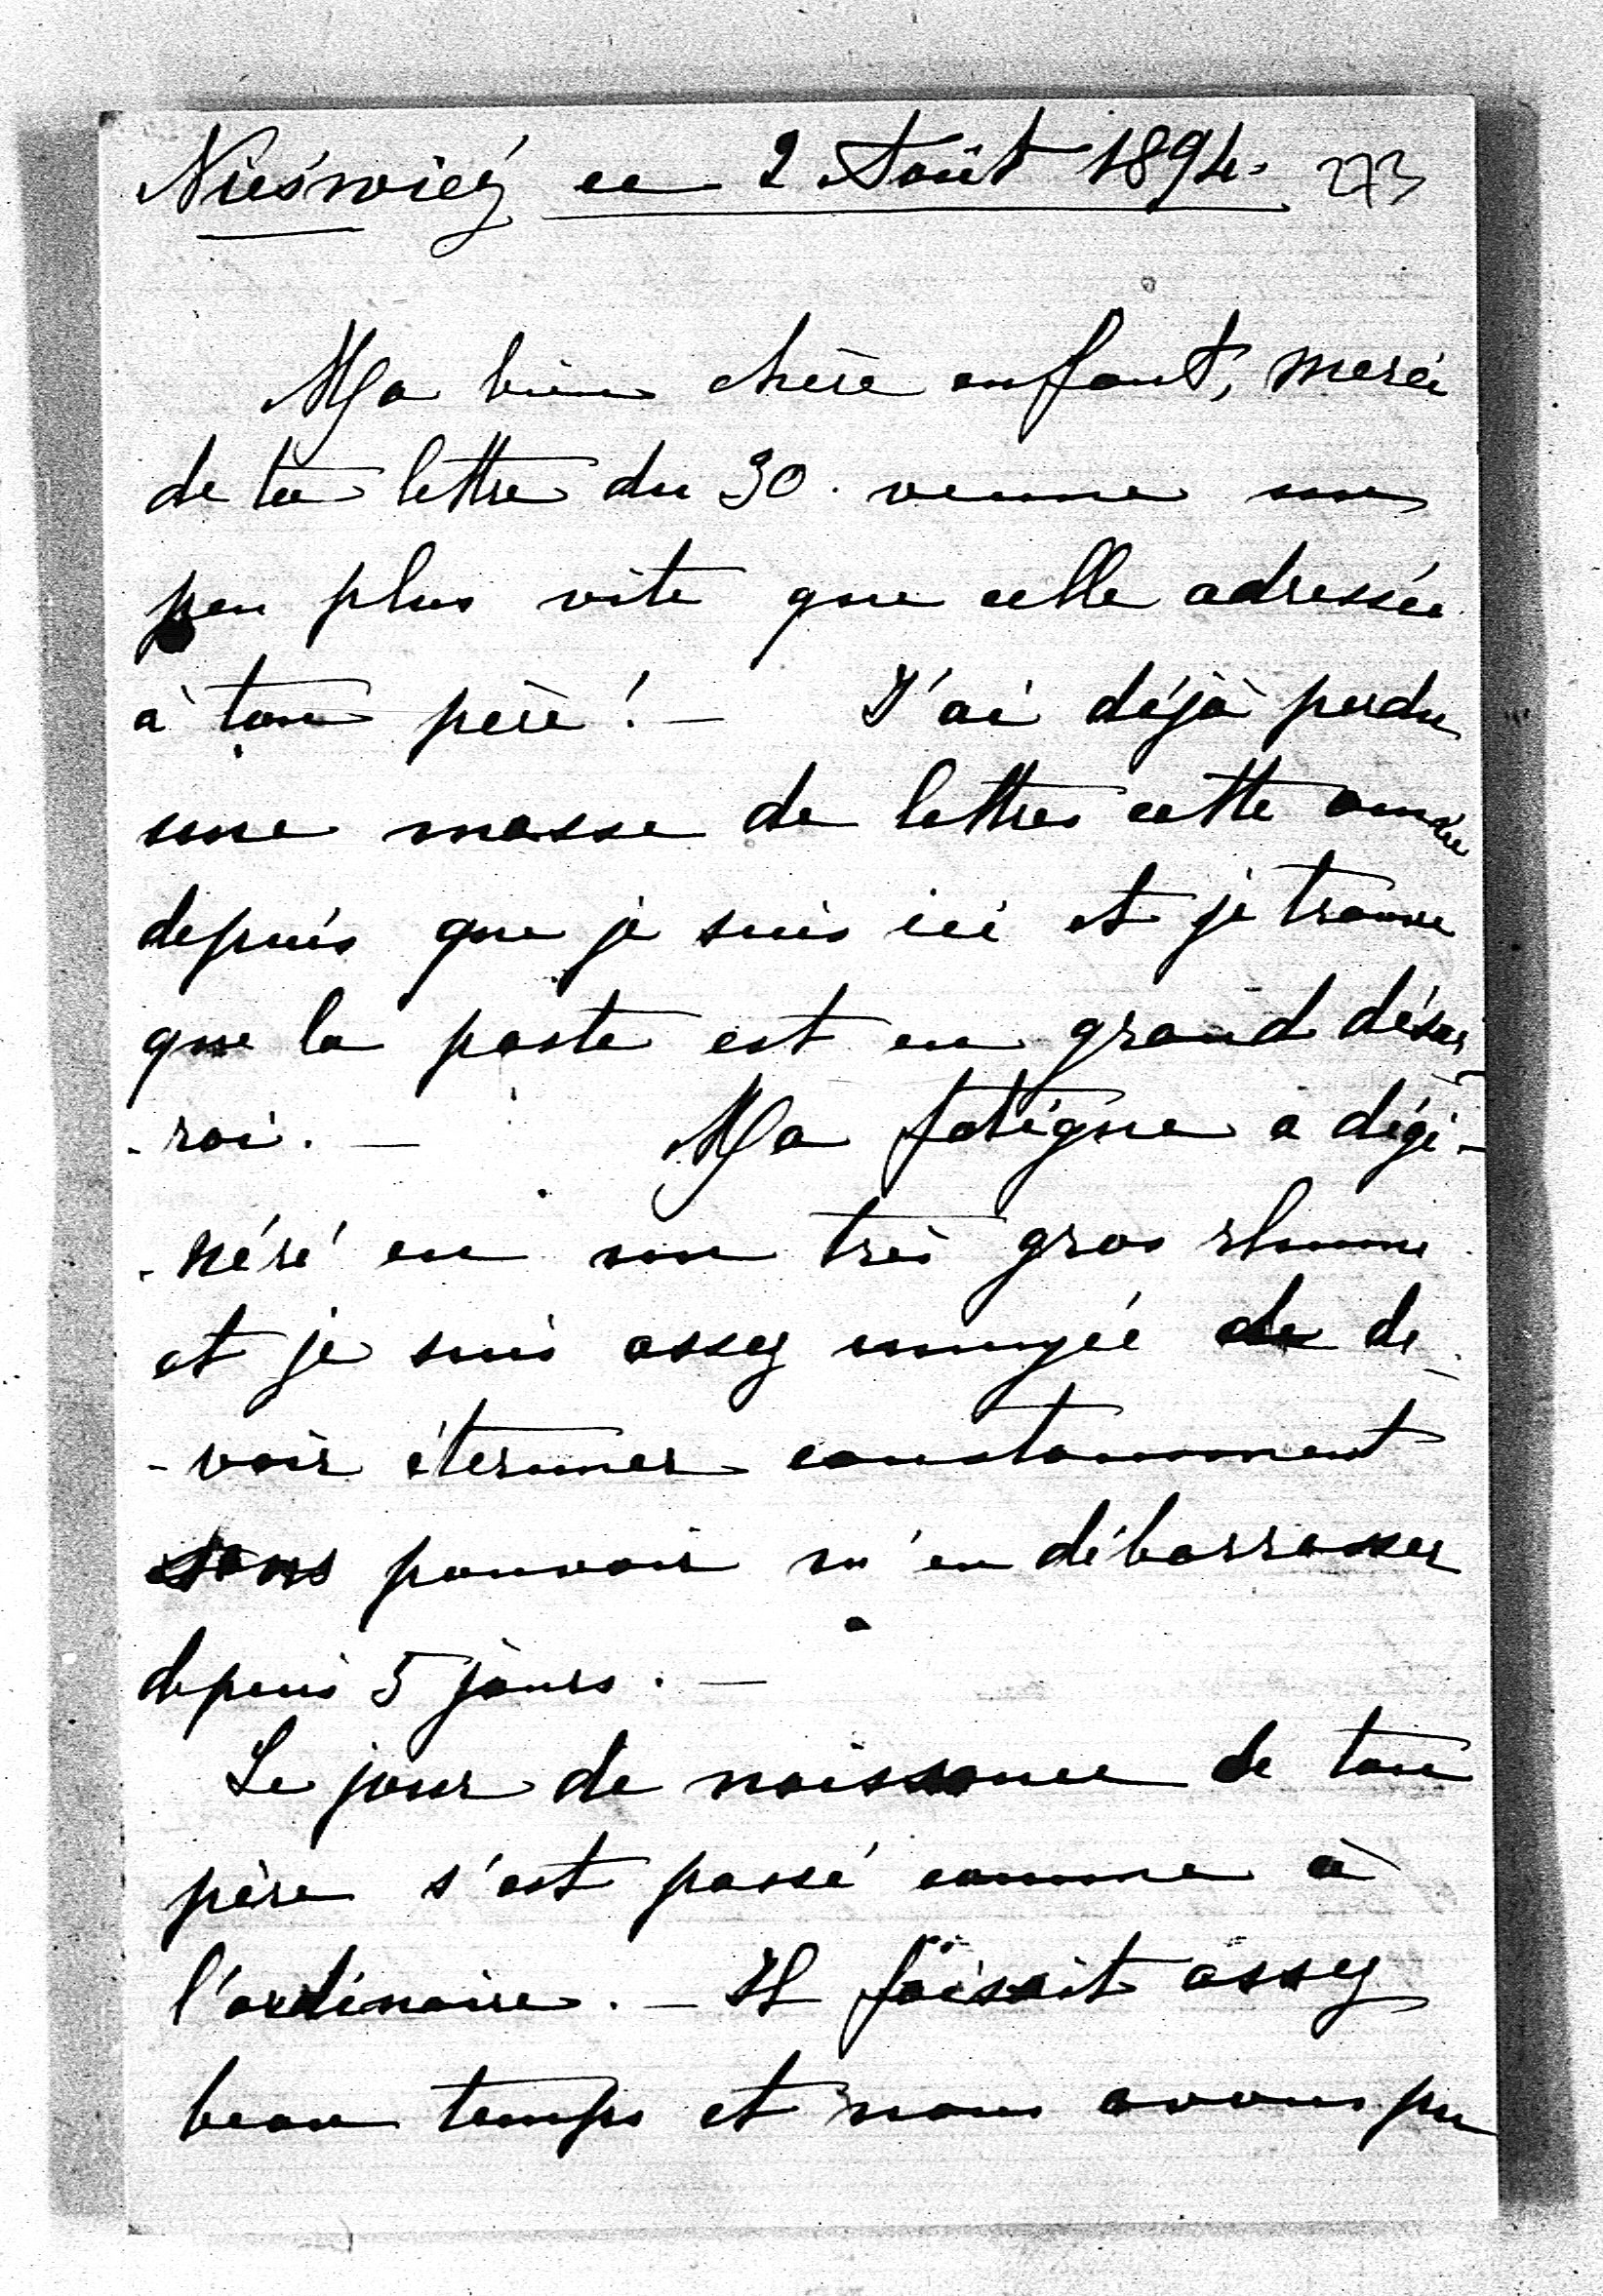 Nieśwież ce 2 Août 1894. 273
Ma bien chère enfant, merci
de ta lettre du 30. venue un
peu plus vite que celle adressée
à ton père! — J'ai déjà perdu
une masse de lettres cette année
depuis que je suis ici et je trouve
que la poste est en grand désar-
-roi. — Ma fatigue a dégé-
-néré en un très gros rhume
et je suis assez ennuyée de de-
-voir éternuer constamment
sans pouvoir m'en débarrasser
depuis 5 jours. —
Le jour de naissance de ton
père s'est passé comme à
l'ordinaire. — Il faisait assez
beau temps et nous avons pu